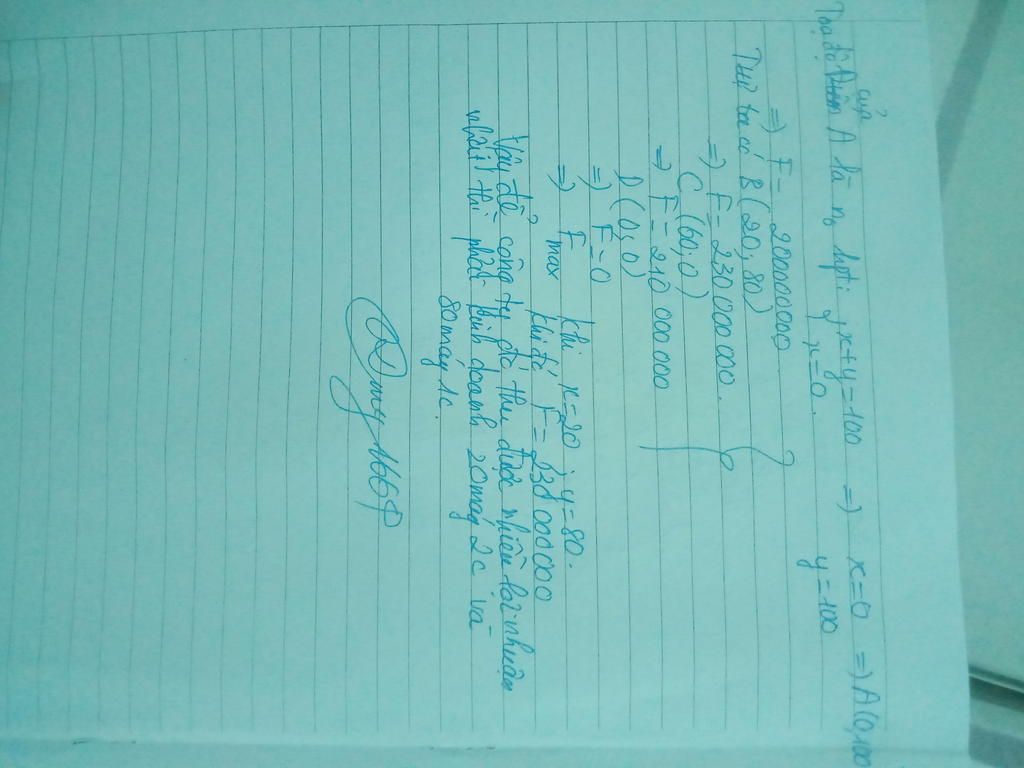 Toạ độ của điểm A là n₀ hpt: { x+y=100 => x=0 => A(0,100
x=0. y=100
=> F = 200000000
Tt: ta có B(20,80)
=> F = 230 000 000.
C(60,0)
=> F = 210 000 000
D(0,0)
=> F=0
=> F max khi x=20; y=80.
khi đó F = 230 000 000
Vậy để công ty đó thu được nhiều lợi nhuận
nhất thì phải kinh doanh 20 máy 2c và
80 máy 1c.